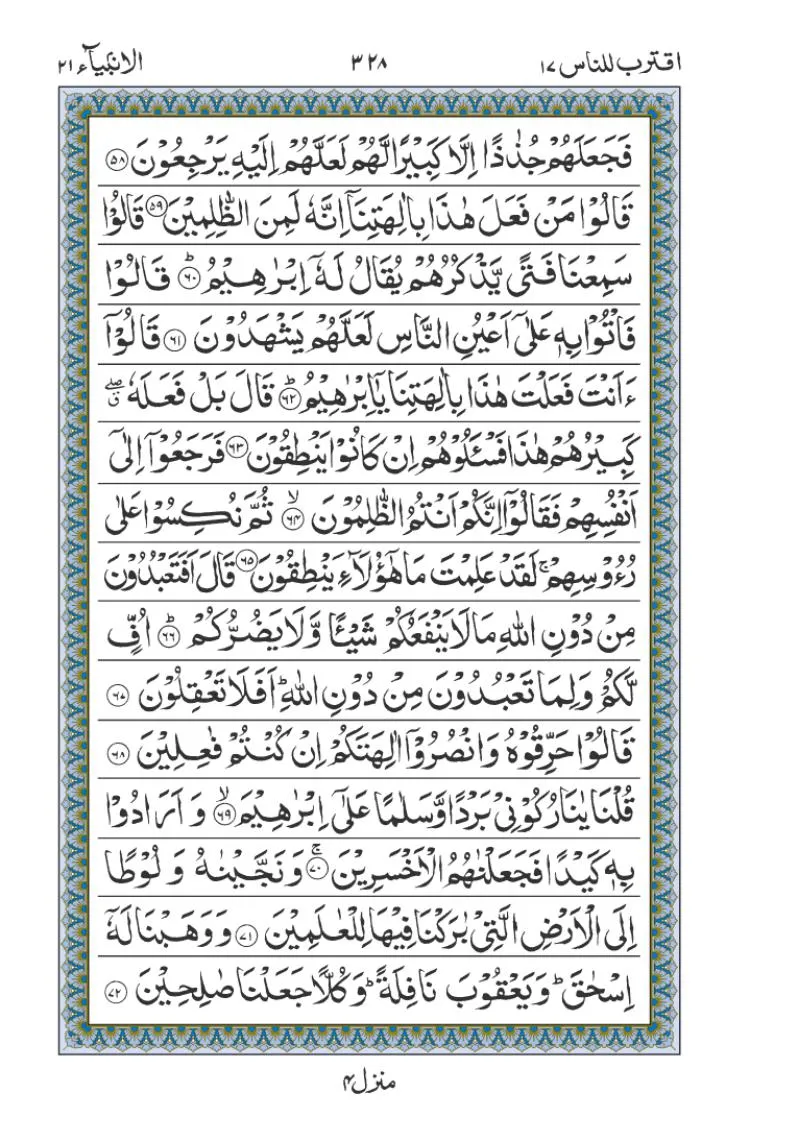 اقترب للناس ۱۷
۳۲۸
الانبیآء ۲۱
فَجَعَلَهُمْ جُذٰذًا اِلَّا كَبِيْرًا لَّهُمْ لَعَلَّهُمْ اِلَيْهِ يَرْجِعُوْنَ ۵۸
قَالُوْا مَنْ فَعَلَ هٰذَا بِاٰلِهَتِنَاۤ اِنَّهٗ لَمِنَ الظّٰلِمِيْنَ ۵۹ قَالُوْا
سَمِعْنَا فَتًى يَّذْكُرُهُمْ يُقَالُ لَهٗۤ اِبْرٰهِيْمُ ؕ ۶۰ قَالُوْا
فَاْتُوْا بِهٖ عَلٰۤى اَعْيُنِ النَّاسِ لَعَلَّهُمْ يَشْهَدُوْنَ ۶۱ قَالُوْۤا
ءَاَنْتَ فَعَلْتَ هٰذَا بِاٰلِهَتِنَا يٰۤاِبْرٰهِيْمُ ؕ ۶۲ قَالَ بَلْ فَعَلَهٗ ۖۗ
كَبِيْرُهُمْ هٰذَا فَسْـَٔلُوْهُمْ اِنْ كَانُوْا يَنْطِقُوْنَ ۶۳ فَرَجَعُوْۤا اِلٰۤى
اَنْفُسِهِمْ فَقَالُوْۤا اِنَّكُمْ اَنْتُمُ الظّٰلِمُوْنَ ۙ ۶۴ ثُمَّ نُكِسُوْا عَلٰى
رُءُوْسِهِمْ ۚ لَقَدْ عَلِمْتَ مَا هٰۤؤُلَآءِ يَنْطِقُوْنَ ۶۵ قَالَ اَفَتَعْبُدُوْنَ
مِنْ دُوْنِ اللّٰهِ مَا لَا يَنْفَعُكُمْ شَيْـًٔا وَّلَا يَضُرُّكُمْ ؕ ۶۶ اُفٍّ
لَّكُمْ وَلِمَا تَعْبُدُوْنَ مِنْ دُوْنِ اللّٰهِ ؕ اَفَلَا تَعْقِلُوْنَ ۶۷
قَالُوْا حَرِّقُوْهُ وَانْصُرُوْۤا اٰلِهَتَكُمْ اِنْ كُنْتُمْ فٰعِلِيْنَ ۶۸
قُلْنَا يٰنَارُ كُوْنِىْ بَرْدًا وَّسَلٰمًا عَلٰۤى اِبْرٰهِيْمَ ۙ ۶۹ وَاَرَادُوْا
بِهٖ كَيْدًا فَجَعَلْنٰهُمُ الْاَخْسَرِيْنَ ۚ ۷۰ وَنَجَّيْنٰهُ وَلُوْطًا
اِلَى الْاَرْضِ الَّتِىْ بٰرَكْنَا فِيْهَا لِلْعٰلَمِيْنَ ۷۱ وَوَهَبْنَا لَهٗۤ
اِسْحٰقَ ؕ وَيَعْقُوْبَ نَافِلَةً ؕ وَكُلًّا جَعَلْنَا صٰلِحِيْنَ ۷۲
منزل ۴